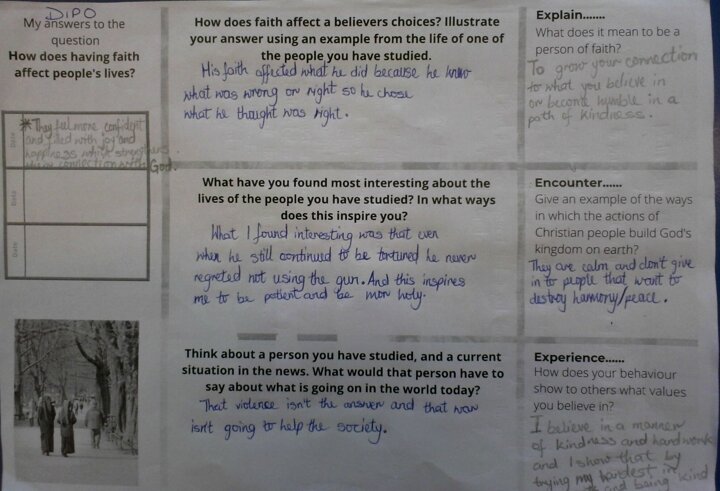 DIPO
My answers to the
question
How does having faith
affect people's lives?
Date
*They feel more confident
and filled with joy and
happiness which strengthens
connection with God.
Date
Date
How does faith affect a believers choices? Illustrate
your answer using an example from the life of one of
the people you have studied.
His faith affected what he did because he knew
what was wrong or right so he chose
what he thought was right.
What have you found most interesting about the
lives of the people you have studied? In what ways
does this inspire you?
What I found interesting was that even
when he still continued to be tortured he never
regreted not using the gun. And this inspires
me to be patient and be more holy.
Think about a person you have studied, and a current
situation in the news. What would that person have
to say about what is going on in the world today?
That violence isn't the answer and that war
isn't going to help the society.
Explain.......
What does it mean to be a
person of faith?
To grow your connection
to what you believe in
or become humble in a
path of kindness.
Encounter......
Give an example of the ways
in which the actions of
Christian people build God's
kingdom on earth?
They are calm and don't give
in to people that want to
destroy harmony/peace.
Experience......
How does your behaviour
show to others what values
you believe in?
I believe in a manner
of kindness and hardwork
and I show that by
trying my hardest in
and being kind